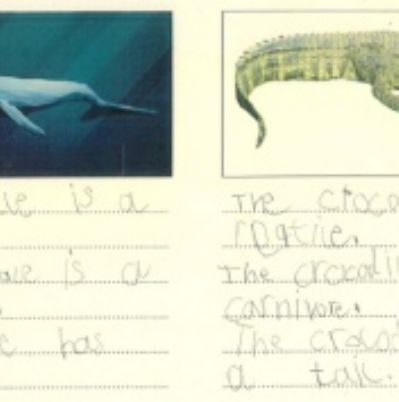 is a
is a
has
The croco
reptile.
The crocodi
carnivore.
The croco
a tail.